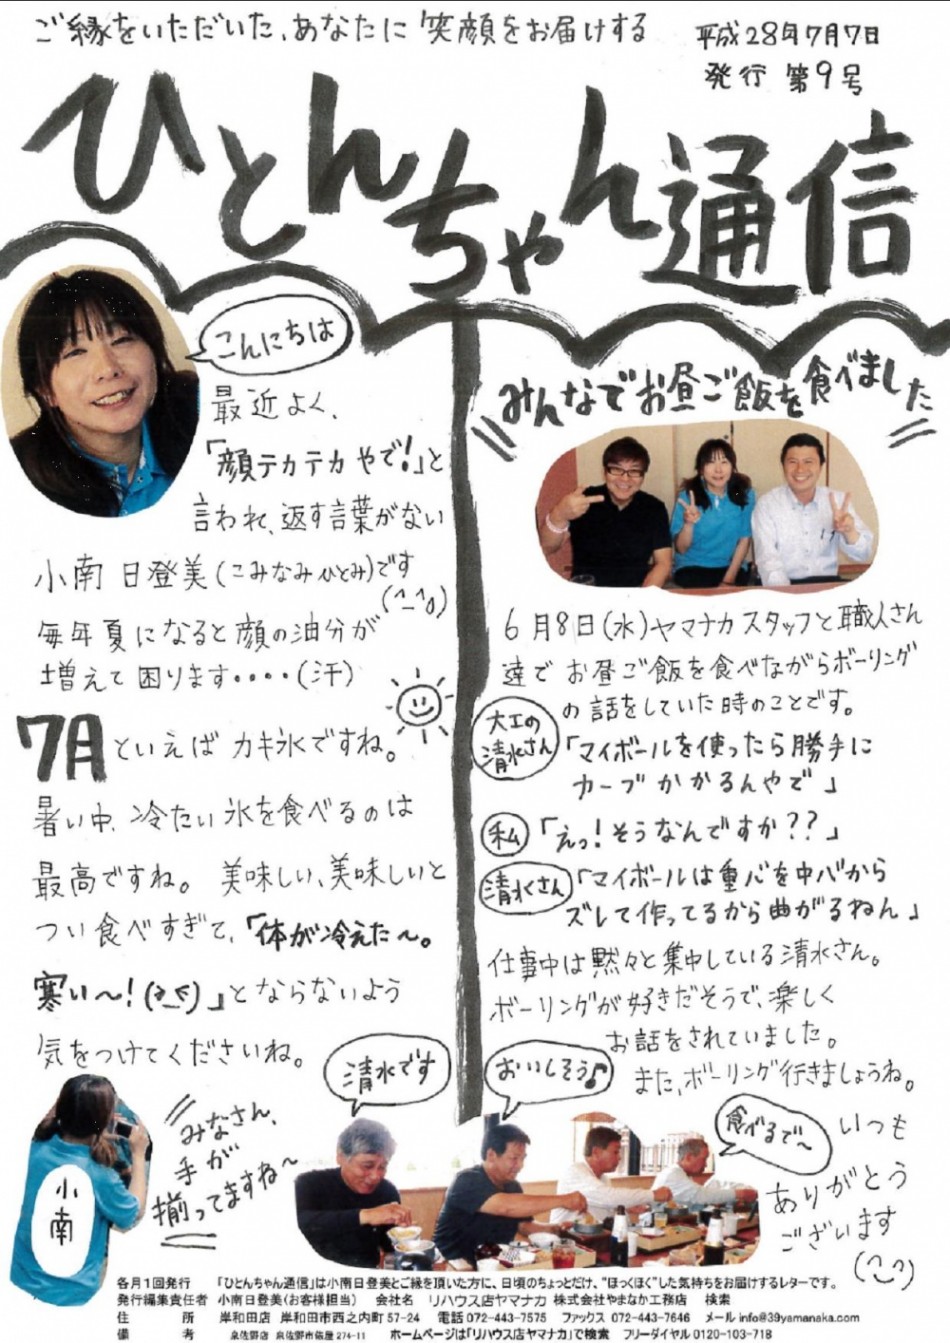 ご縁をいただいた、あなたに笑顔をお届けする
平成28年7月7日
発行 第9号
ひとんちゃん通信
こんにちは
最近よく、
「顔テカテカやで!」と
言われ、返す言葉がない
小南 日登美(こみなみひとみ)です
(^_^;)
毎年夏になると顔の油分が
増えて困ります・・・・(汗)
7月といえばカキ氷ですね。
暑い中、冷たい氷を食べるのは
最高ですね。 美味しい、美味しいと
つい食べすぎて、「体が冷えた〜。
寒い〜!(>_<)」とならないよう
気をつけてくださいね。
小南
みなさん、
手が
揃ってますね〜
みんなでお昼ご飯を食べました
6月8日(水)ヤマナカスタッフと職人さん
達でお昼ご飯を食べながらボーリング
の話をしていた時のことです。
大工の
清水さん
「マイボールを使ったら勝手に
カーブかかるんやで」
私
「えっ!そうなんですか??」
清水さん
「マイボールは重心を中心から
ズレて作ってるから曲がるねん」
仕事中は黙々と集中している清水さん。
ボーリングが好きだそうで、楽しく
お話をされていました。
また、ボーリング行きましょうね。
清水です
おいしそう♪
食べるで〜
いつも
ありがとう
ございます
(^_^)
各月1回発行 「ひとんちゃん通信」は小南日登美とご縁を頂いた方に、日頃のちょっとだけ、"ほっくほく"した気持ちをお届けするレターです。
発行編集責任者 小南日登美(お客様担当) 会社名 リハウス店ヤマナカ 株式会社やまなか工務店 検索
住所 岸和田店 岸和田市西之内町57-24 電話072-443-7575 ファックス 072-443-7646 メール info@39yamanaka.com
備考 泉佐野店 泉佐野市俵屋274-11 ホームページは「リハウス店ヤマナカ」で検索 フリーダイヤル 0120-103-718